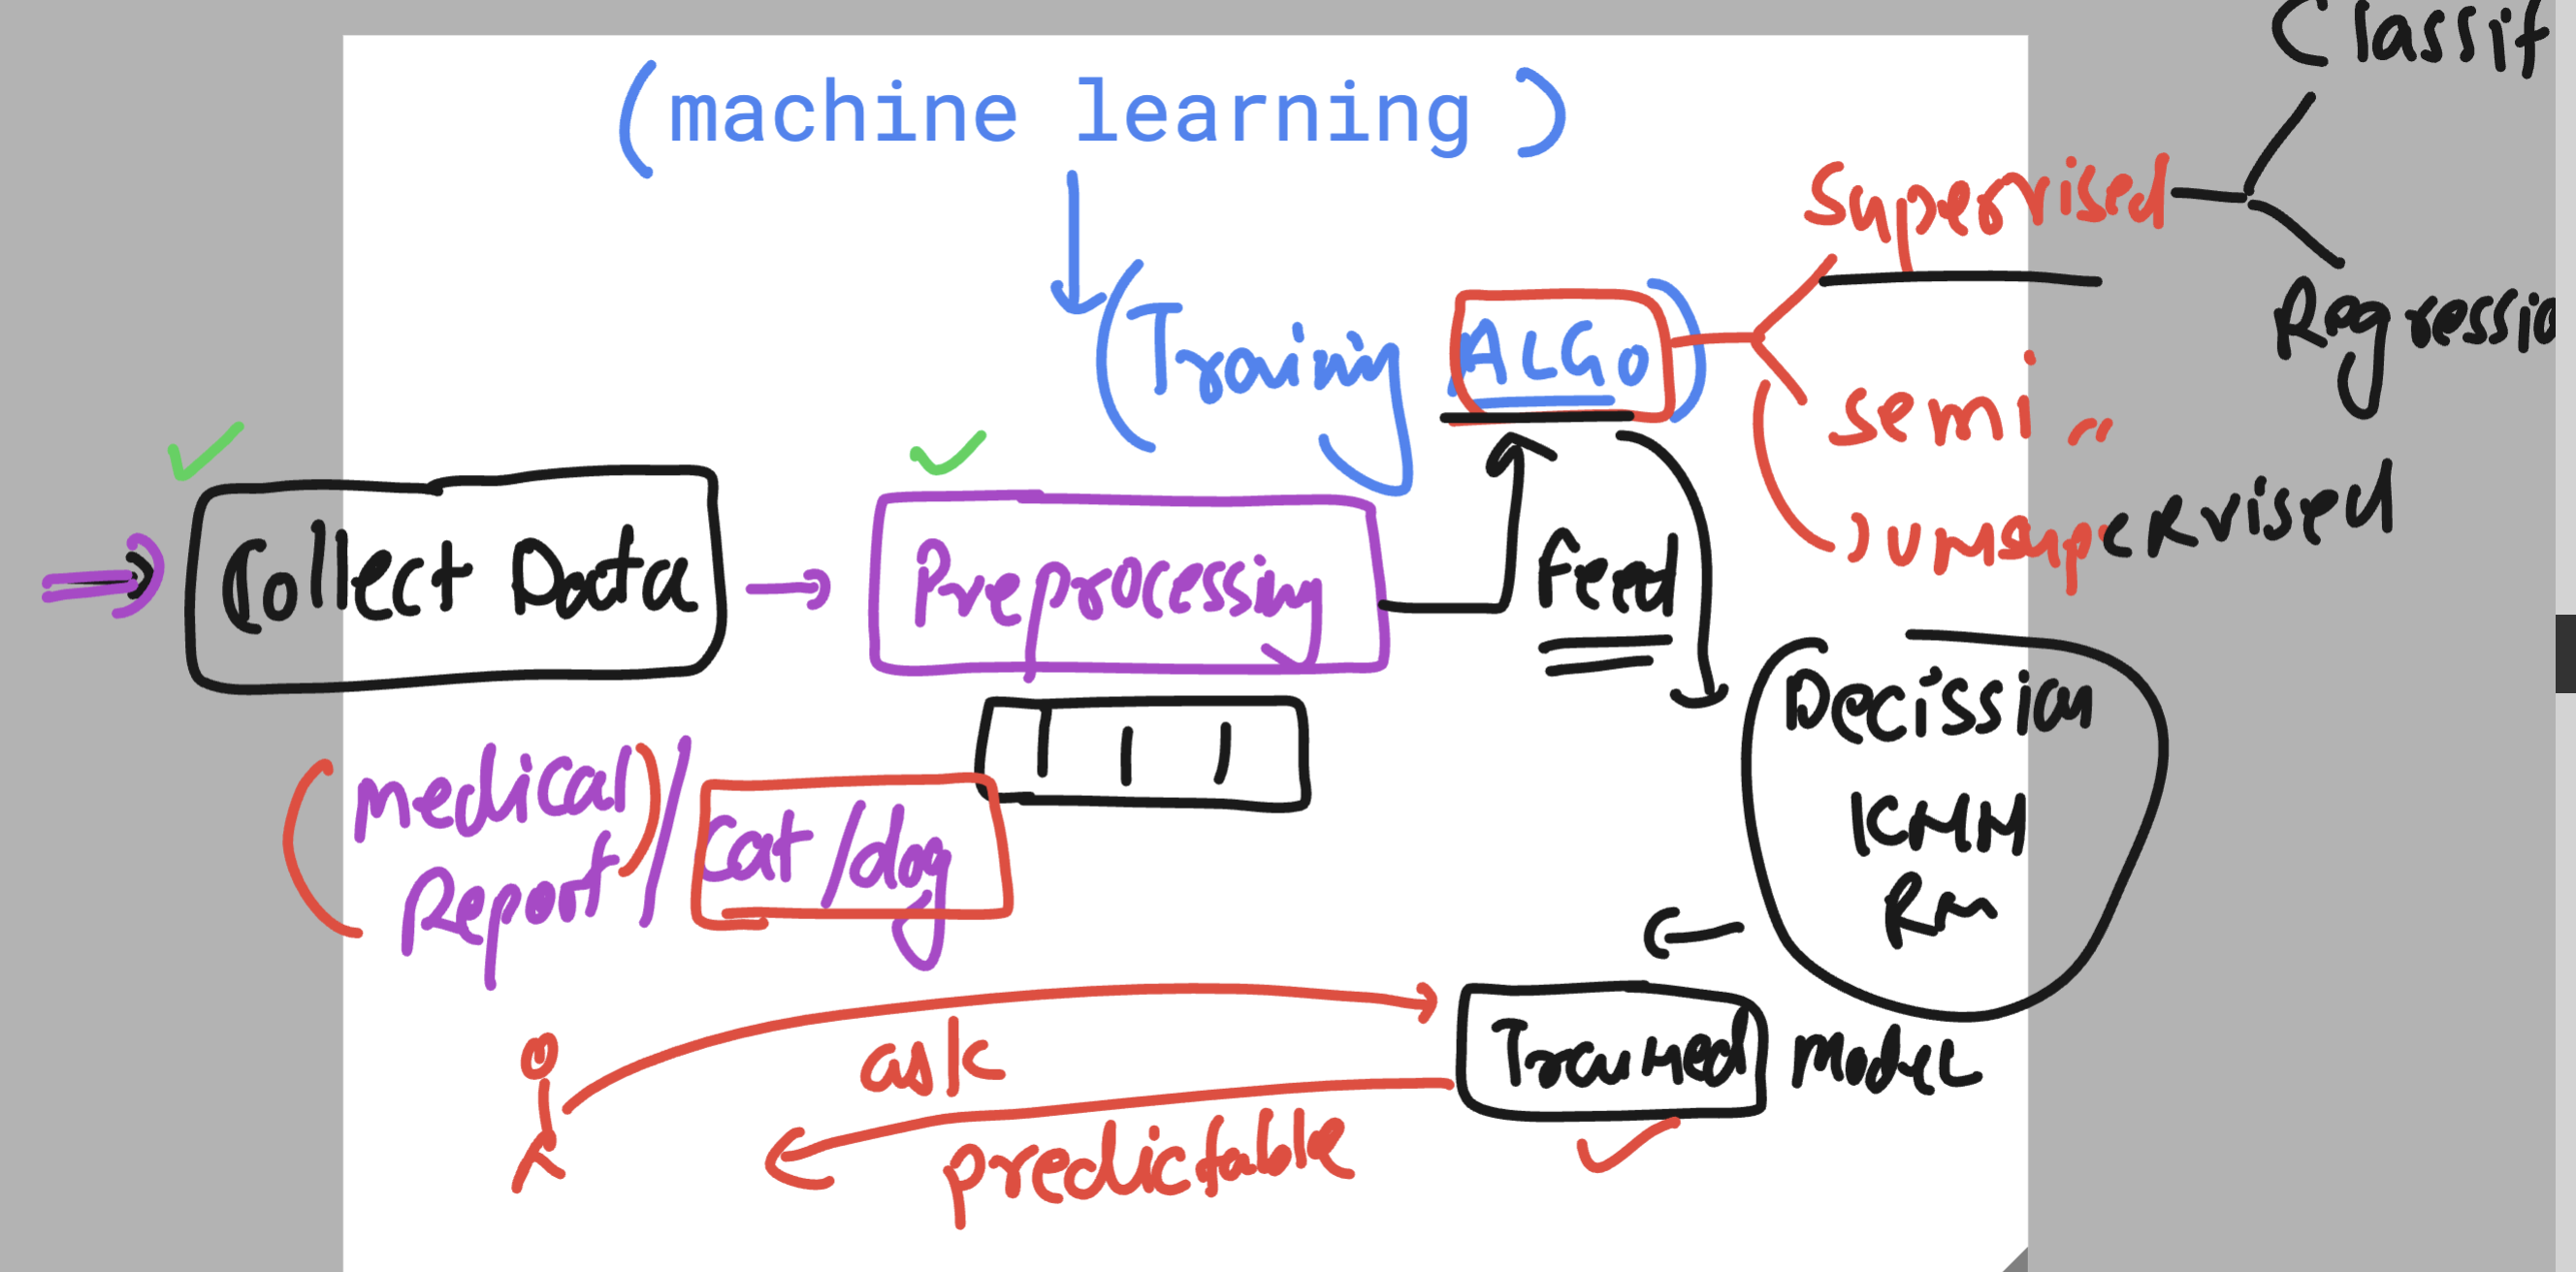 (machine learning )
Classif
Supervised
(Training ALGO)
Regressio
semi "
unsupervised
Collect Data
Preprocessing
Feed
Decission
KNN
medical Report / cat/dog
Trained Model
ask
predictable